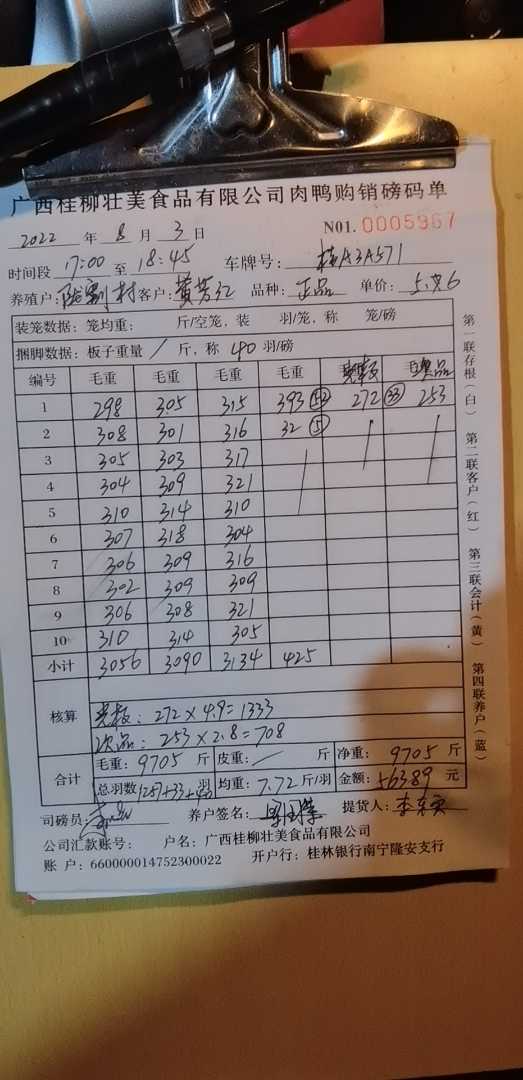 广西桂柳壮美食品有限公司肉鸭购销磅码单
2022 年 8 月 3 日 N01. 0005967
时间段 17:00 至 18:45 车牌号: 桂A3A571
养殖户: 村 客户: 黄芳红 品种: 正品 单价:
装笼数据: 笼均重: 斤/空笼, 装 羽/笼, 称 笼/磅
捆脚数据: 板子重量 / 斤, 称 40 羽/磅
编号 毛重 毛重 毛重 毛重
1 298 305 315 393 272 33 253
2 308 301 316 32 5
3 305 303 317
4 304 309 321
5 310 314 310
6 307 318 304
7 306 309 316
8 302 309 309
9 306 308 321
10 310 314 305
小计 3056 3090 3134 425
核算
壳板: 272×4.9=1333
次品: 253×2.8=708
合计 毛重: 9705 斤 皮重: / 斤 净重: 9705 斤
总羽数 1257+33+ 羽 均重: 7.72 斤/羽 金额: 56389 元
司磅员: 养户签名: 提货人:
公司汇款账号: 户名: 广西桂柳壮美食品有限公司
账 户: 660000014752300022 开户行: 桂林银行南宁隆安支行
第一联存根(白) 第二联客户(红) 第三联会计(黄) 第四联养户(蓝)